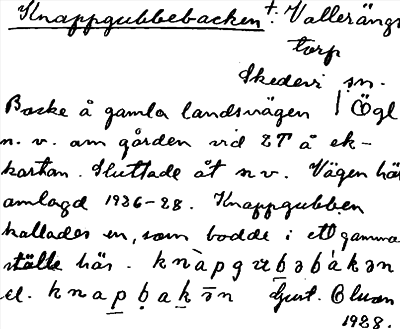 Knappgubbebacken †: Vallerängs
torp
Skedevi sn.
Backe å gamla landsvägen | Ögl
n. v. om gården vid ET å ek-
kartan. Sluttade åt n v. Vägen här
omlagd 1926-28. Knappgubben
kallades en, som bodde i ett gamma
ställe här. knàpgɯbəbàkən
el. knapbakən Gust. Olson
1928.